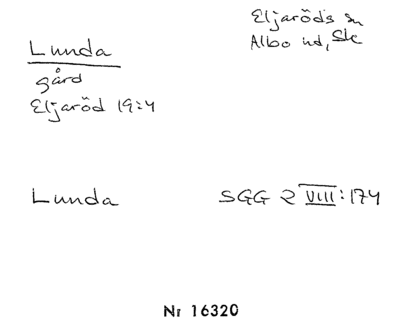 Lunda
gård
Eljaröd 19:4
Eljaröds sn
Albo hd, Sk
Lunda
SGG 2 VIII:174
Nr 16320